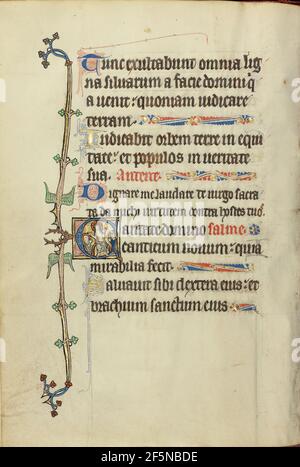 Tunc exultabunt omnia lig
na silvarum a facie domini q̄
a venit: quoniam iudicare
terram.
Iudicabit orbem terre in equi
tate: et populos in veritate
sua. Antene.
Dignare me laudare te virgo sacra
ta da michi virtutem contra hostes tuos.
Cantate domino salme
canticum novum: quia
mirabilia fecit.
Salvavit sibi dextera eius: et
brachium sanctum eius
alamy
Image ID: 2F5NBDE
www.alamy.com